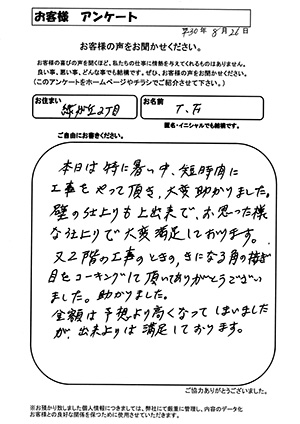 お客様 アンケート
H30年 8月26日
お客様の声をお聞かせください。
お客様の喜びの声を聞くほど、私たちの仕事に情熱を与えてくれるものはありません。
良い事、悪い事、どんな事でも結構です。ぜひ、お客様の声をお聞かせください。
(このアンケートをホームページやチラシでご紹介させて下さい。)
お住まい
緑が丘2丁目
お名前
T.万
匿名・イニシャルでも結構です。
ご自由にお書きください。
本日は特に暑い中、短時間に
工事をやって頂き、大変助かりました。
壁の仕上りも上出来で、お思った様
な仕上りで大変満足しております。
又2階の工事のときの、きになる角の接ぎ
目をコーキングして頂いてありがとうござい
ました。助かりました。
金額は予想より高くなってしまいました
が、出来上りは満足しております。
ご協力ありがとうございました。
※お預かり致しました個人情報につきましては、弊社にて厳重に管理し、内容のデータ化
お客様との良好な関係を保つために使用させていただきます。